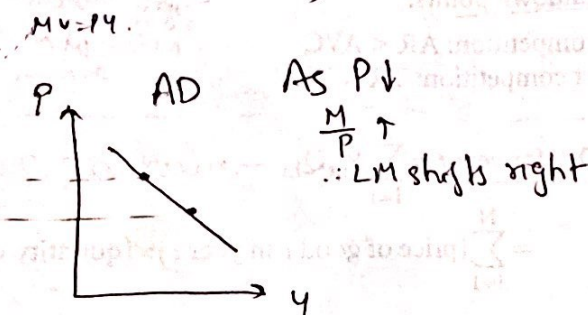 MV=PY.
P AD As P↓
M/P ↑
∴ LM shifts right
y